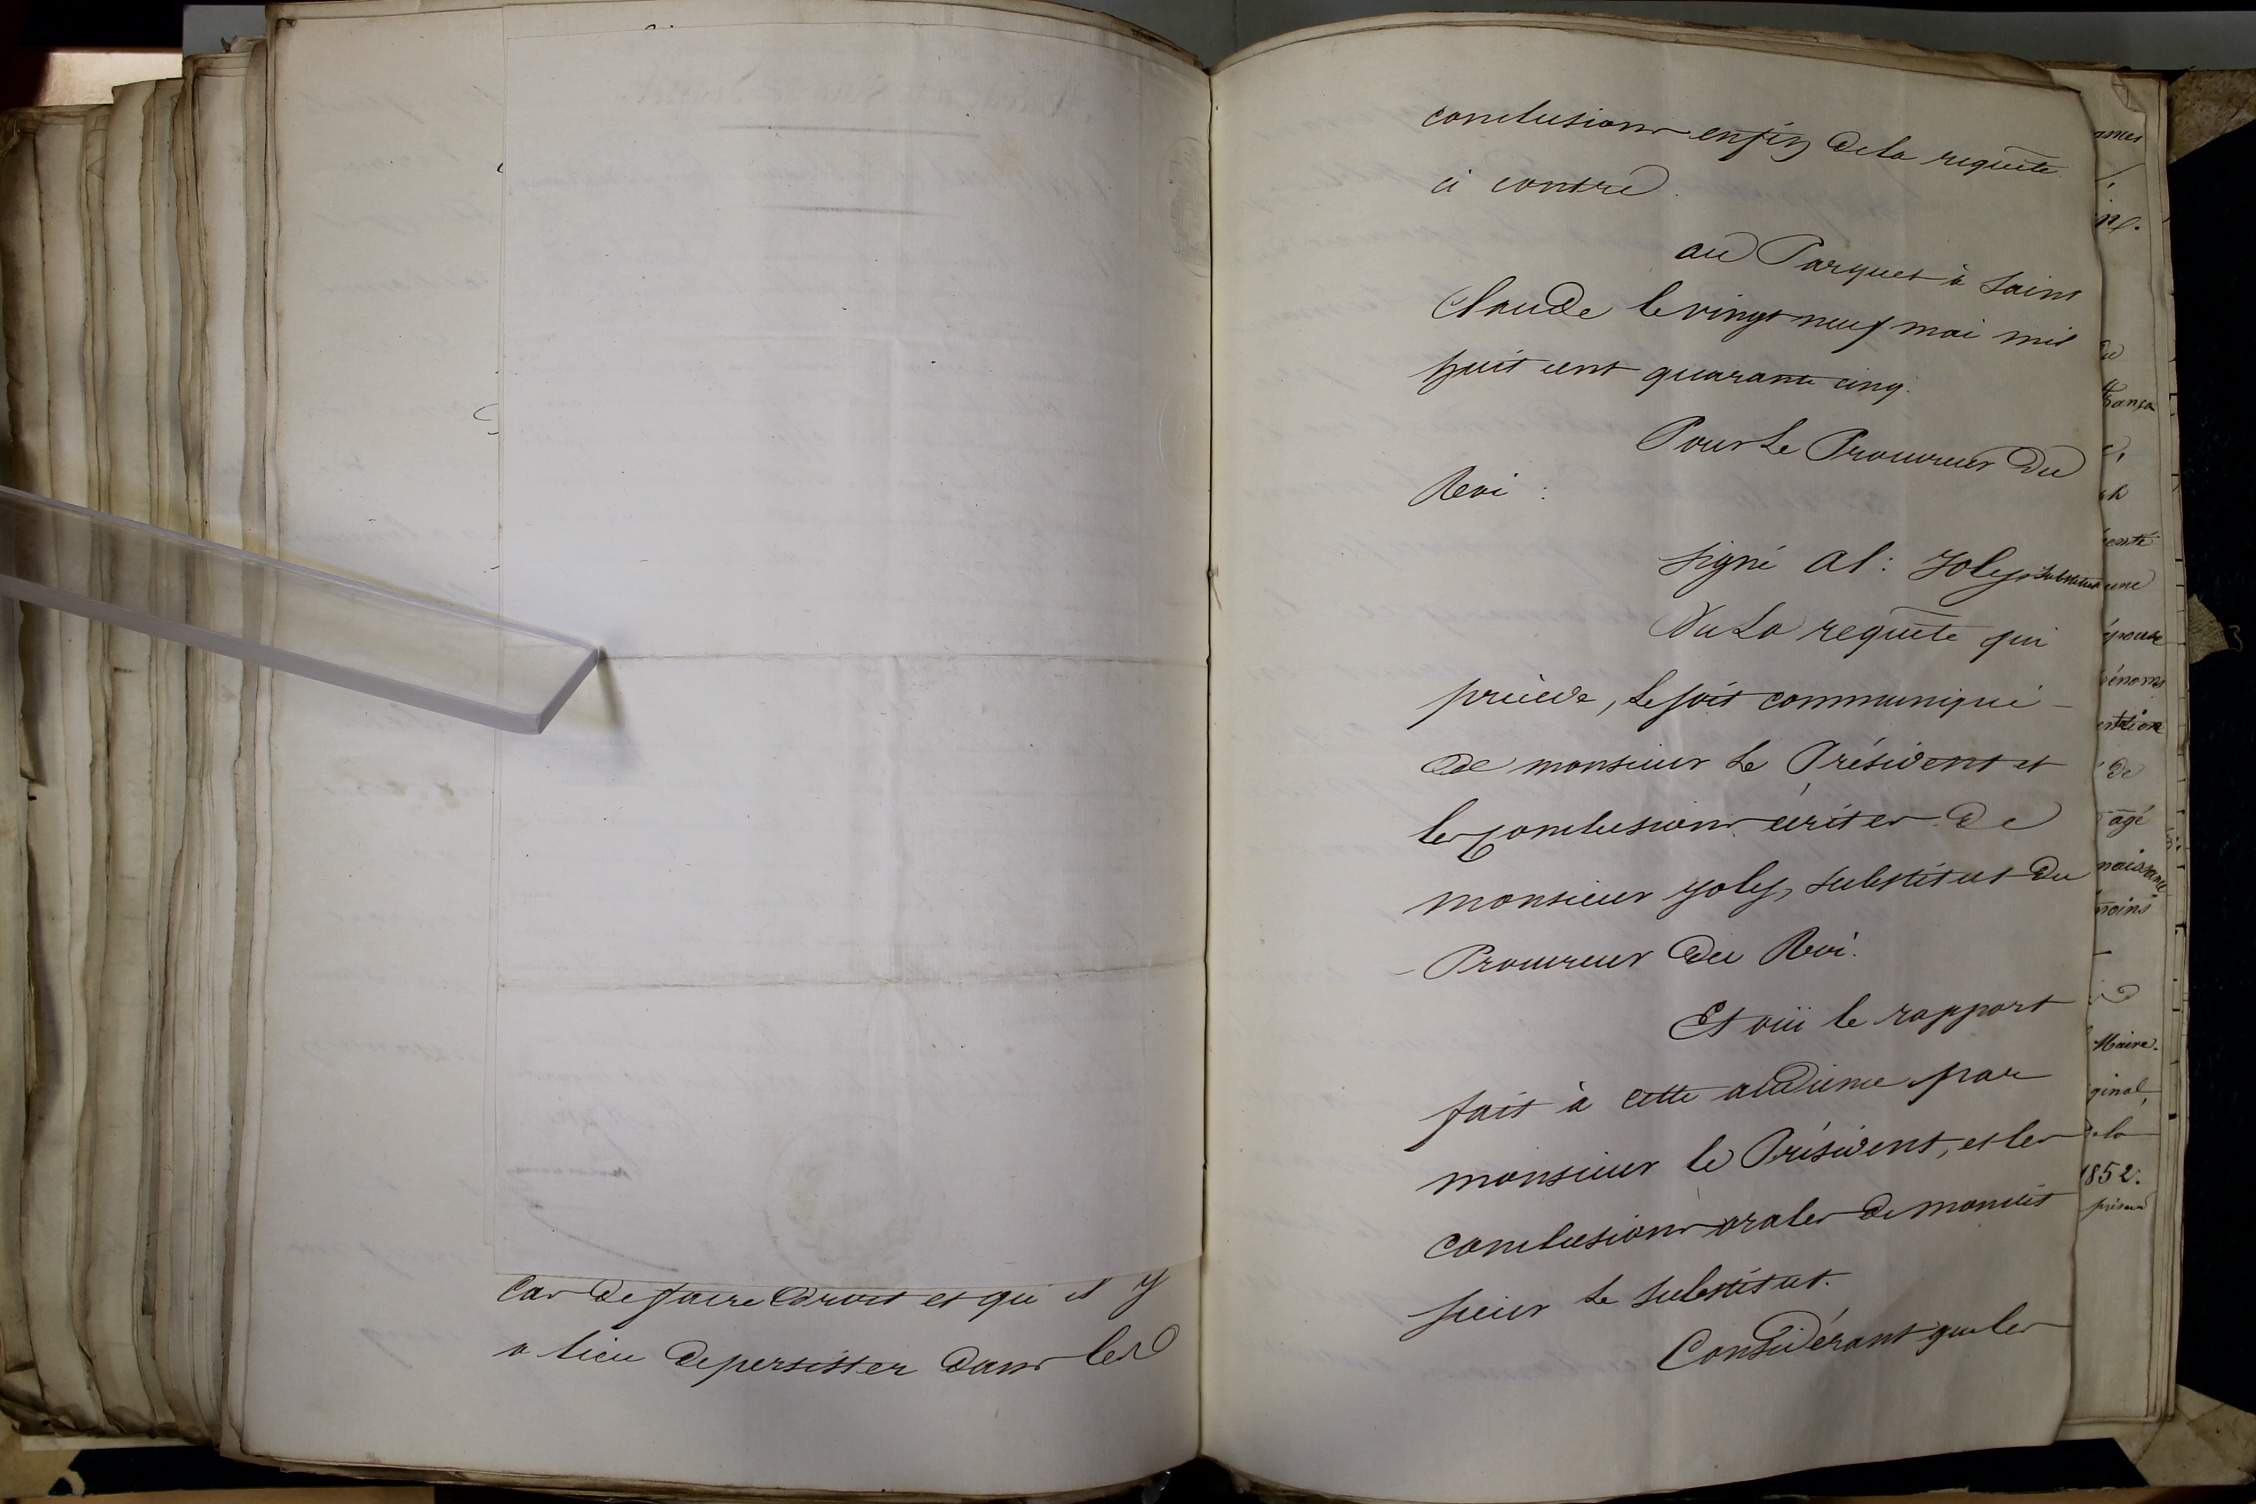 Cas de faire droit et qu'il y
a lieu de persister dans les
conclusions enfin de la requête
ci contre.
au Parquet à Saint
Claude le vingt neuf mai mil
huit cent quarante cinq.
Pour Le Procureur du
Roi :
signé Al: Joly, substitut
Vu La requête qui
précède, Le soit communiqué
de monsieur Le Président et
les conclusions écrites de
monsieur Joly, substitut du
Procureur du Roi.
Et ouï le rapport
fait à cette audience par
monsieur le Président, et les
conclusions orales de mondit
sieur Le substitut.
Considérant que les
une
épouse
de
âgé
naissance
Maire.
de la
1852.